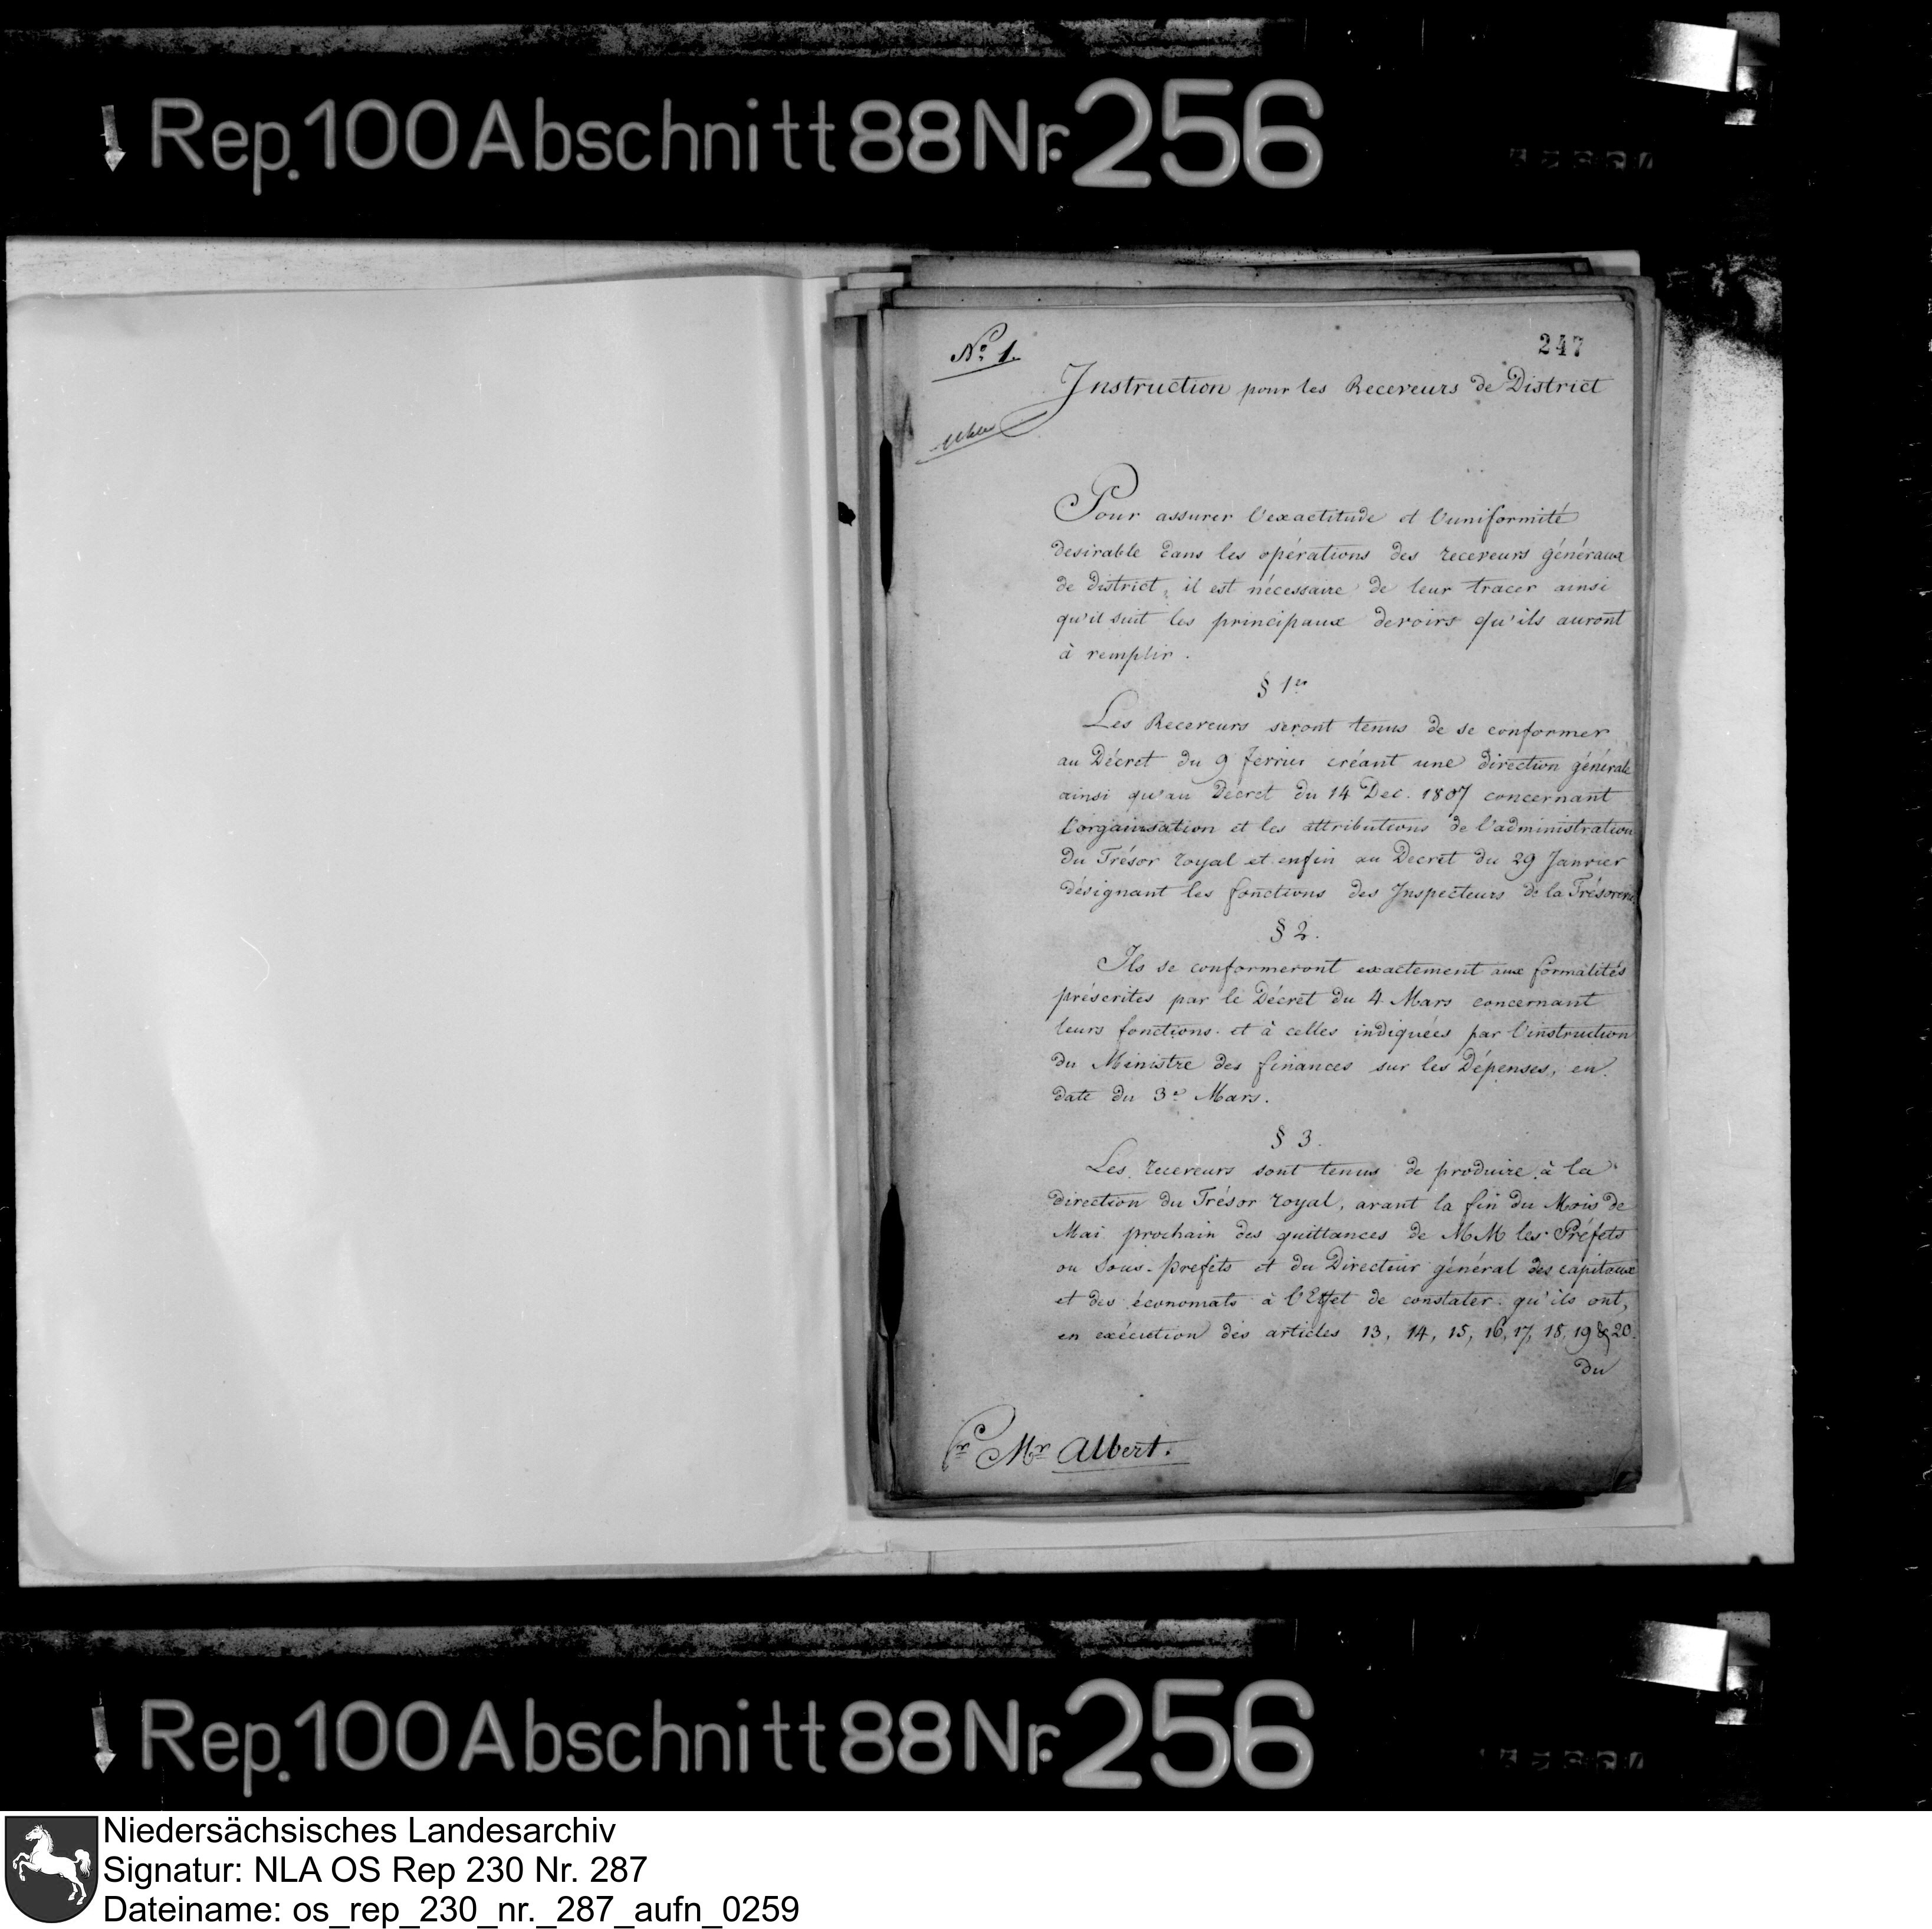 Rep. 100 Abschnitt 88 Nr. 256
No. 1.
247
Instruction pour les Receveurs de District
Pour assurer l'exactitude et l'uniformité
desirable dans les opérations des receveurs généraux
de district, il est nécessaire de leur tracer ainsi
qu'il suit les principaux devoirs qu'ils auront
à remplir.
§ 1er
Les Receveurs seront tenus de se conformer
au Décret du 9 fevrier créant une direction générale
ainsi qu'au Decret du 14 Dec. 1807 concernant
l'organisation et les attributions de l'administration
du Trésor royal et enfin au Decret du 29 Janvier
désignant les fonctions des Inspecteurs de la Trésorerie
§ 2.
Ils se conformeront exactement aux formalités
préscrites par le Décret du 4 Mars concernant
leurs fonctions et à celles indiquées par l'instruction
du Ministre des finances sur les Dépenses, en
date du 3e Mars.
§ 3.
Les receveurs sont tenus de produire à la
direction du Trésor royal, avant la fin du Mois de
Mai prochain des quittances de MM les Préfets
ou Sous-prefets et du Directeur général des capitaux
et des économats à l'Effet de constater qu'ils ont,
en exécution des articles 13, 14, 15, 16, 17, 18, 19 & 20
du
Pr Mr Albert.
Rep. 100 Abschnitt 88 Nr. 256
Niedersächsisches Landesarchiv
Signatur: NLA OS Rep 230 Nr. 287
Dateiname: os_rep_230_nr._287_aufn_0259